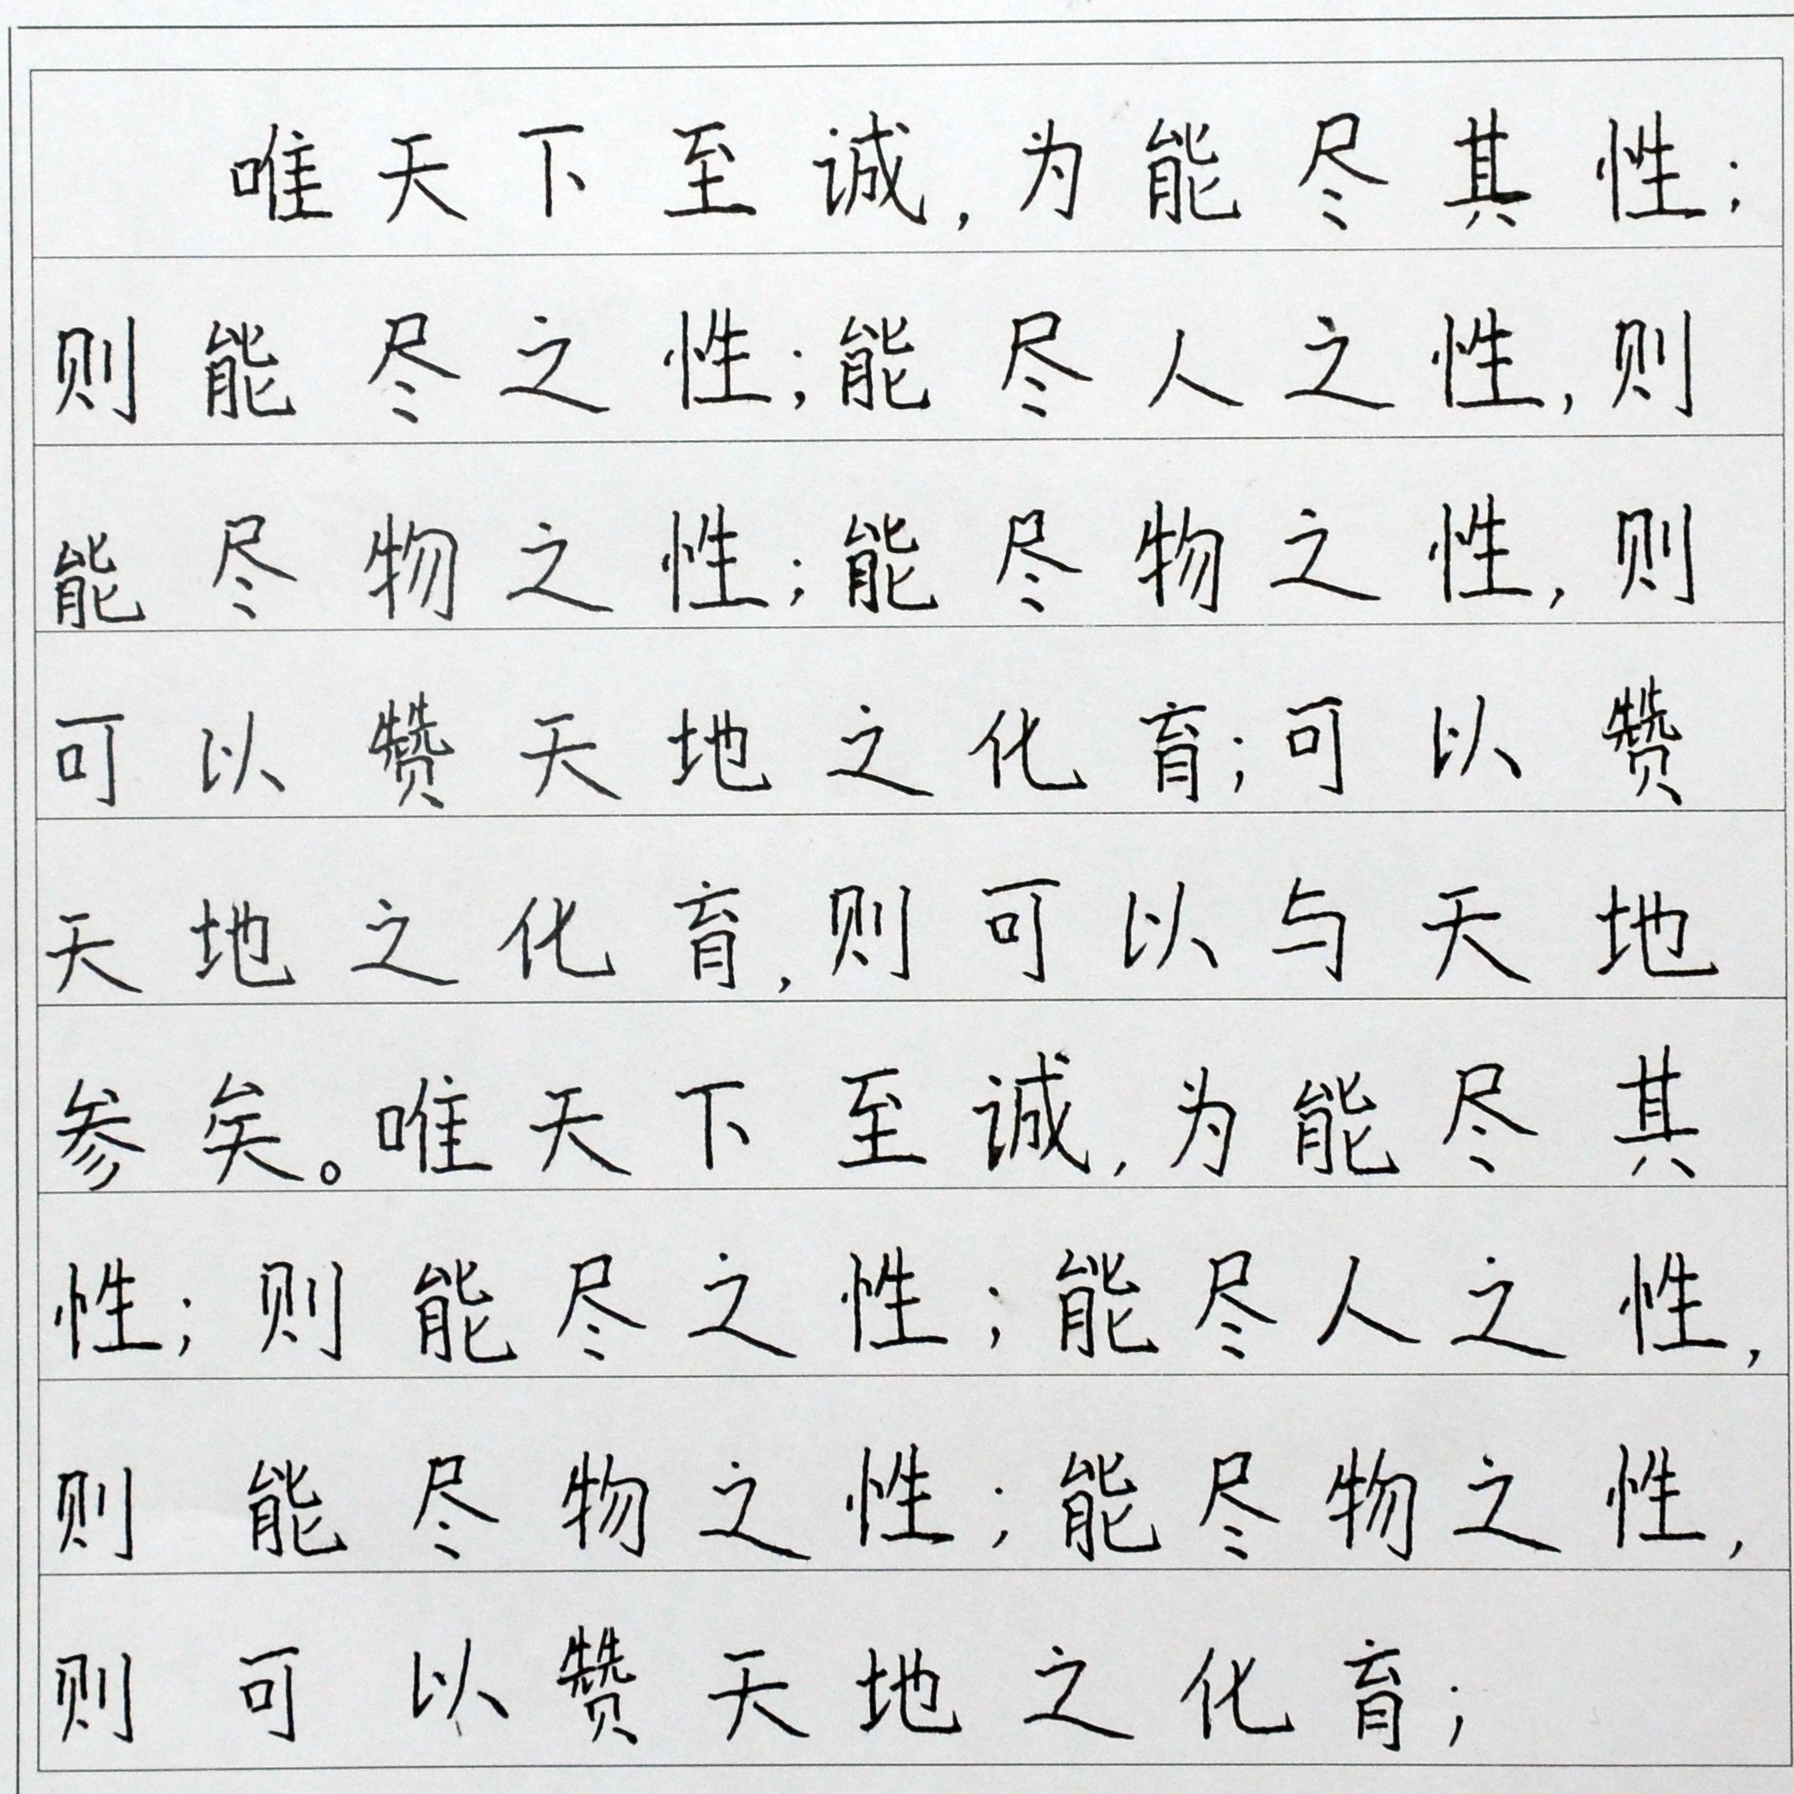 唯天下至诚,为能尽其性;
则能尽之性;能尽人之性,则
能尽物之性;能尽物之性,则
可以赞天地之化育;可以赞
天地之化育,则可以与天地
参矣。唯天下至诚,为能尽其
性;则能尽之性;能尽人之性,
则能尽物之性;能尽物之性,
则可以赞天地之化育;